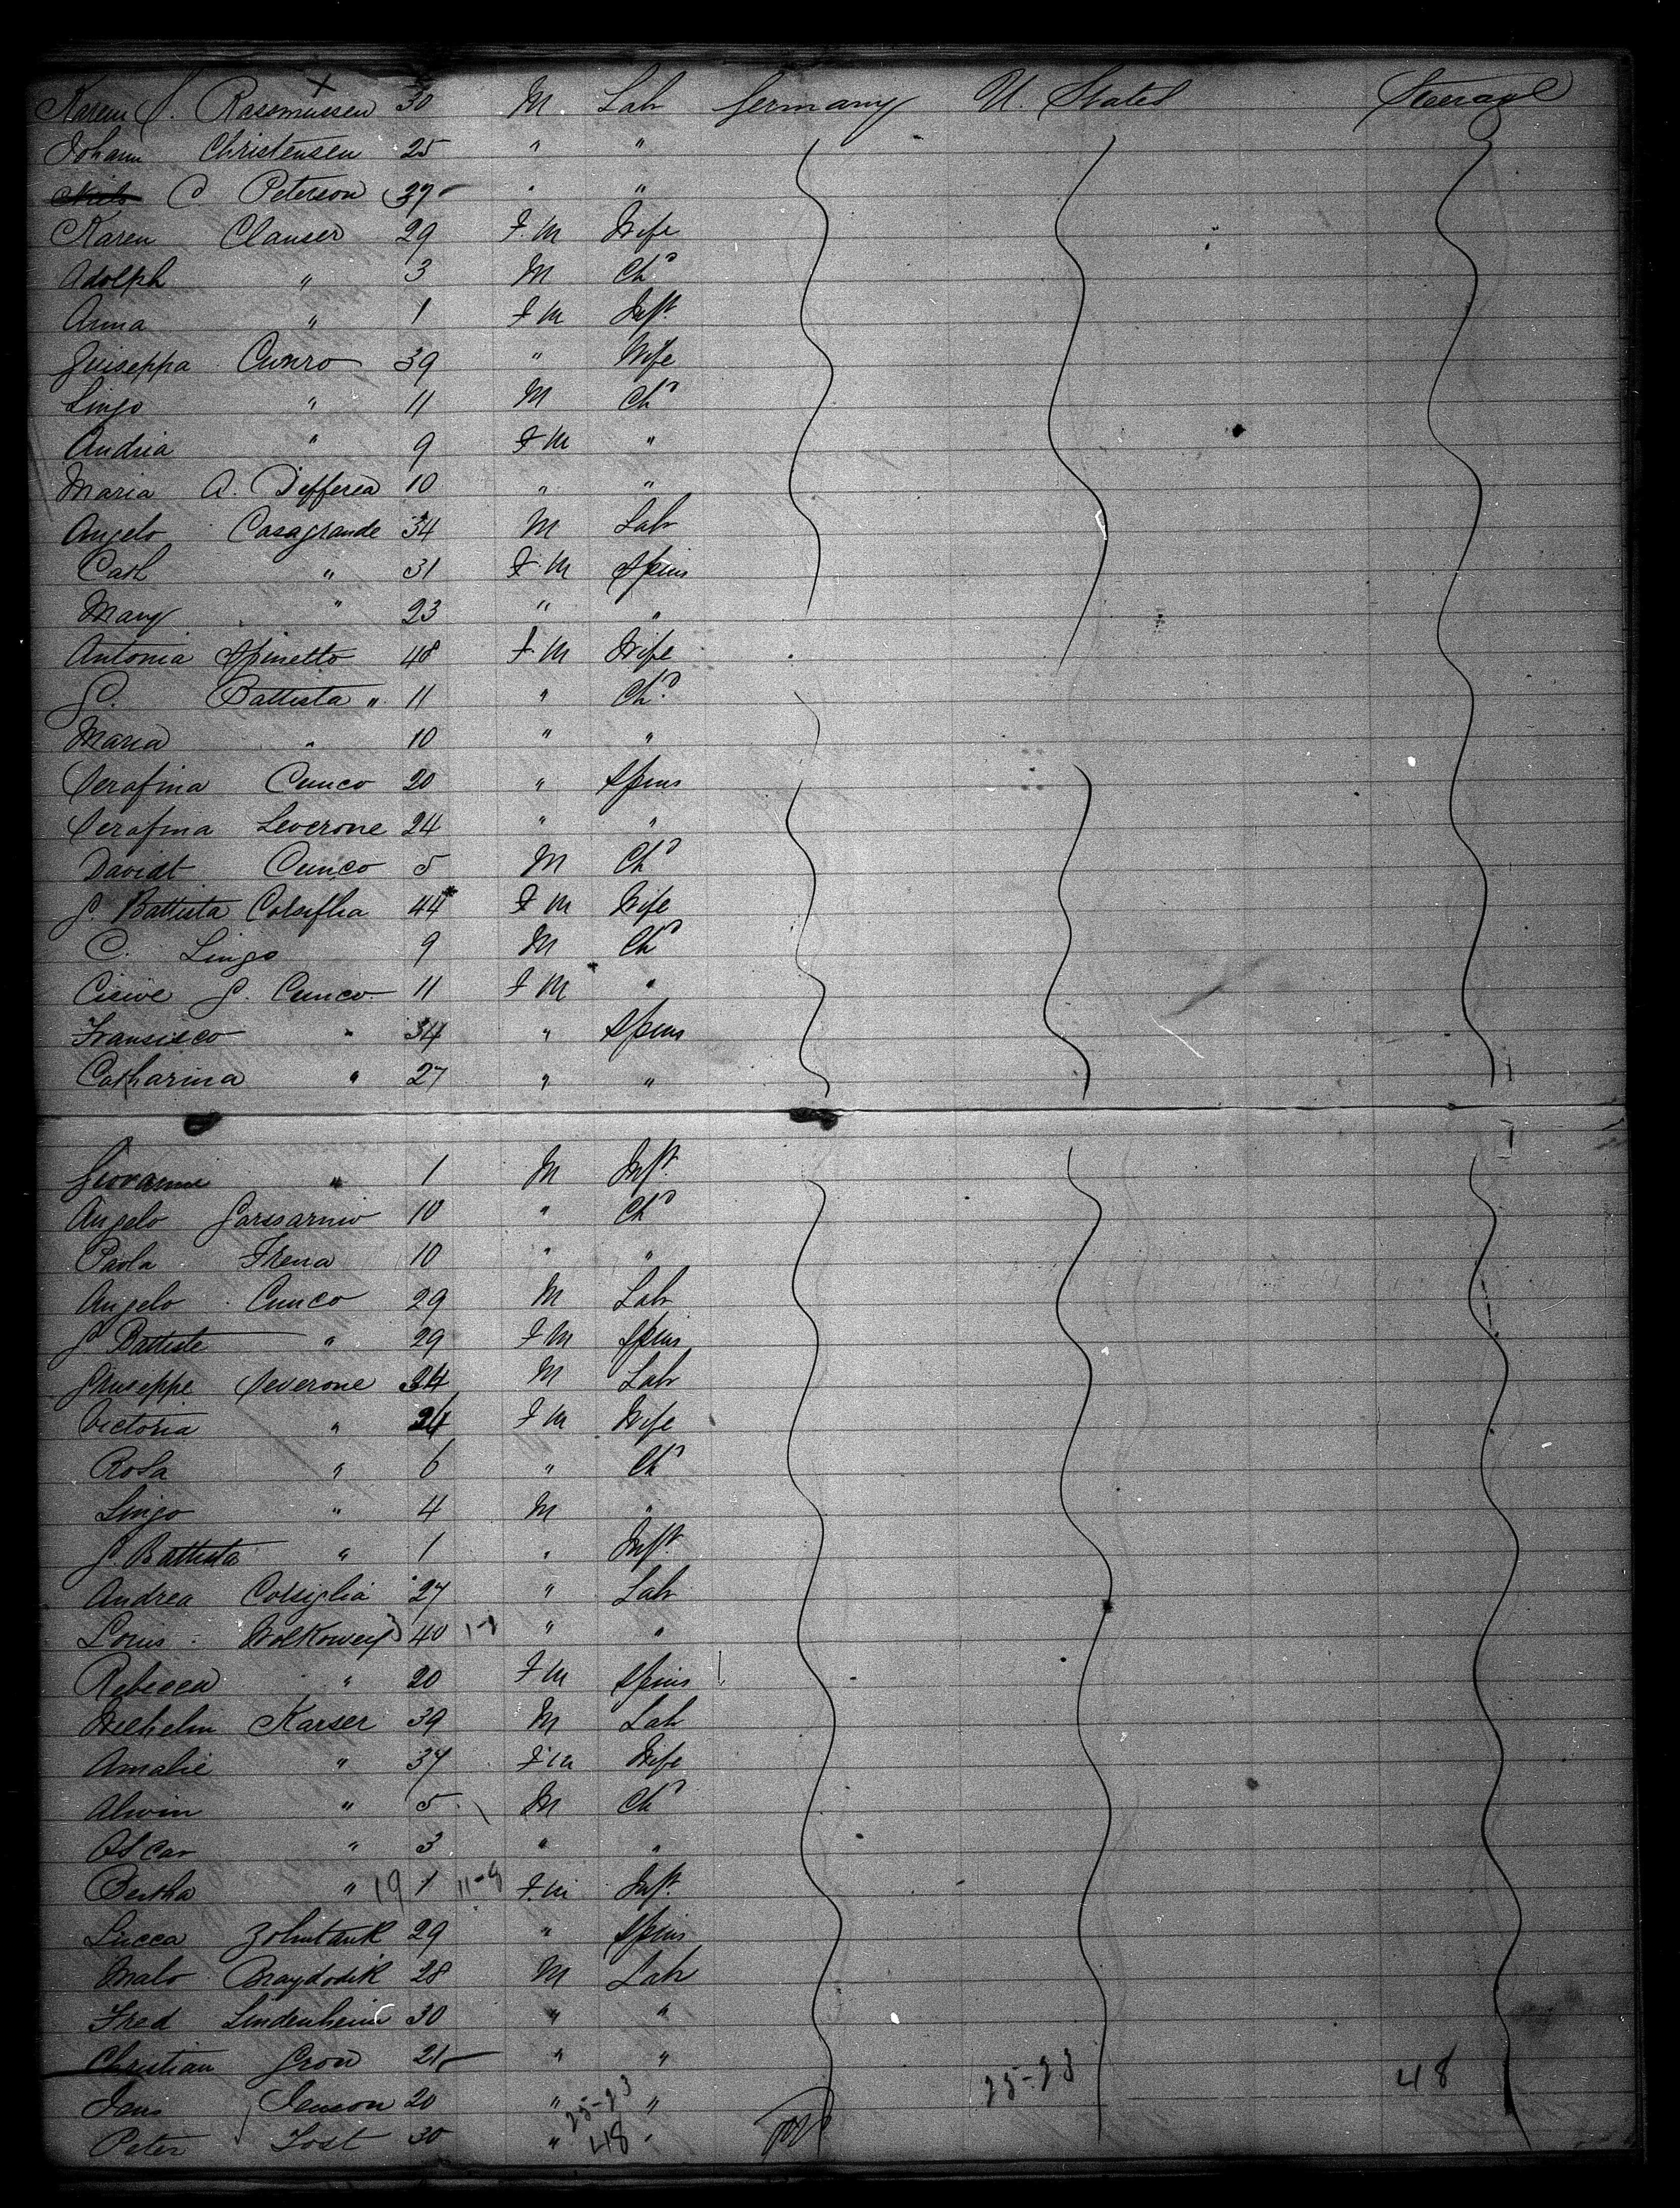 Karen S. Rasmussen 30 M Lab Germany U. States Steerage
Johann Christensen 25 " "
Niels C Peterson 37 " "
Karen Clauser 29 F. M Wife
Adolph " 3 M Chd
Anna " 1 F M Inft
Guiseppa Cunro 39 " Wife
Lingo " 11 M Chd
Andria " 9 F M "
Maria A. Defferea 10 " "
Angelo Casagrande 34 M Lab
Cath " 31 F. M Spins
Mary " 23 " "
Antonia Spinetto 48 F M Wife
G. Battista " 11 " Chd
Maria " 10 " "
Serafina Cunco 20 " Spins
Serafina Leverone 24 " "
Davidt Cunco 5 M Chd
G. Battista 44 F M Wife
C. Lingo 9 M Chd
G. Cunco 11 F M "
Fransisco " 34 " Spins
Catharina " 27 " "
Giovanni " 1 M Inft
Angelo 10 " Chd
Paola Frena 10 " "
Angelo Cunco 29 M Lab
G Battiste " 29 F M Spins
Giuseppe Leverone 34 M Lab
Victoria " 24 F M Wife
Rosa " 6 " Chd
Lingo " 4 M "
G. Battista " 1 " Inft
Andrea Colsiglia 27 " Lab
Louis 40 " "
Rebecca " 20 F M Spins
Wilhelm Karser 39 M Lab
Amalie " 37 F M Wife
Alwin " 5 M Chd
Oscar " 3 " "
Bertha " 19 1 11-8 F. M Inft
Lucca Zolmtank 29 " Spins
Malo 28 M Lab
Fred Lindenheim 30 " "
Christian Gron 21 " "
Jans Janson 20 " " 25-23 25-23 48
Peter Jost 30 " 48 "